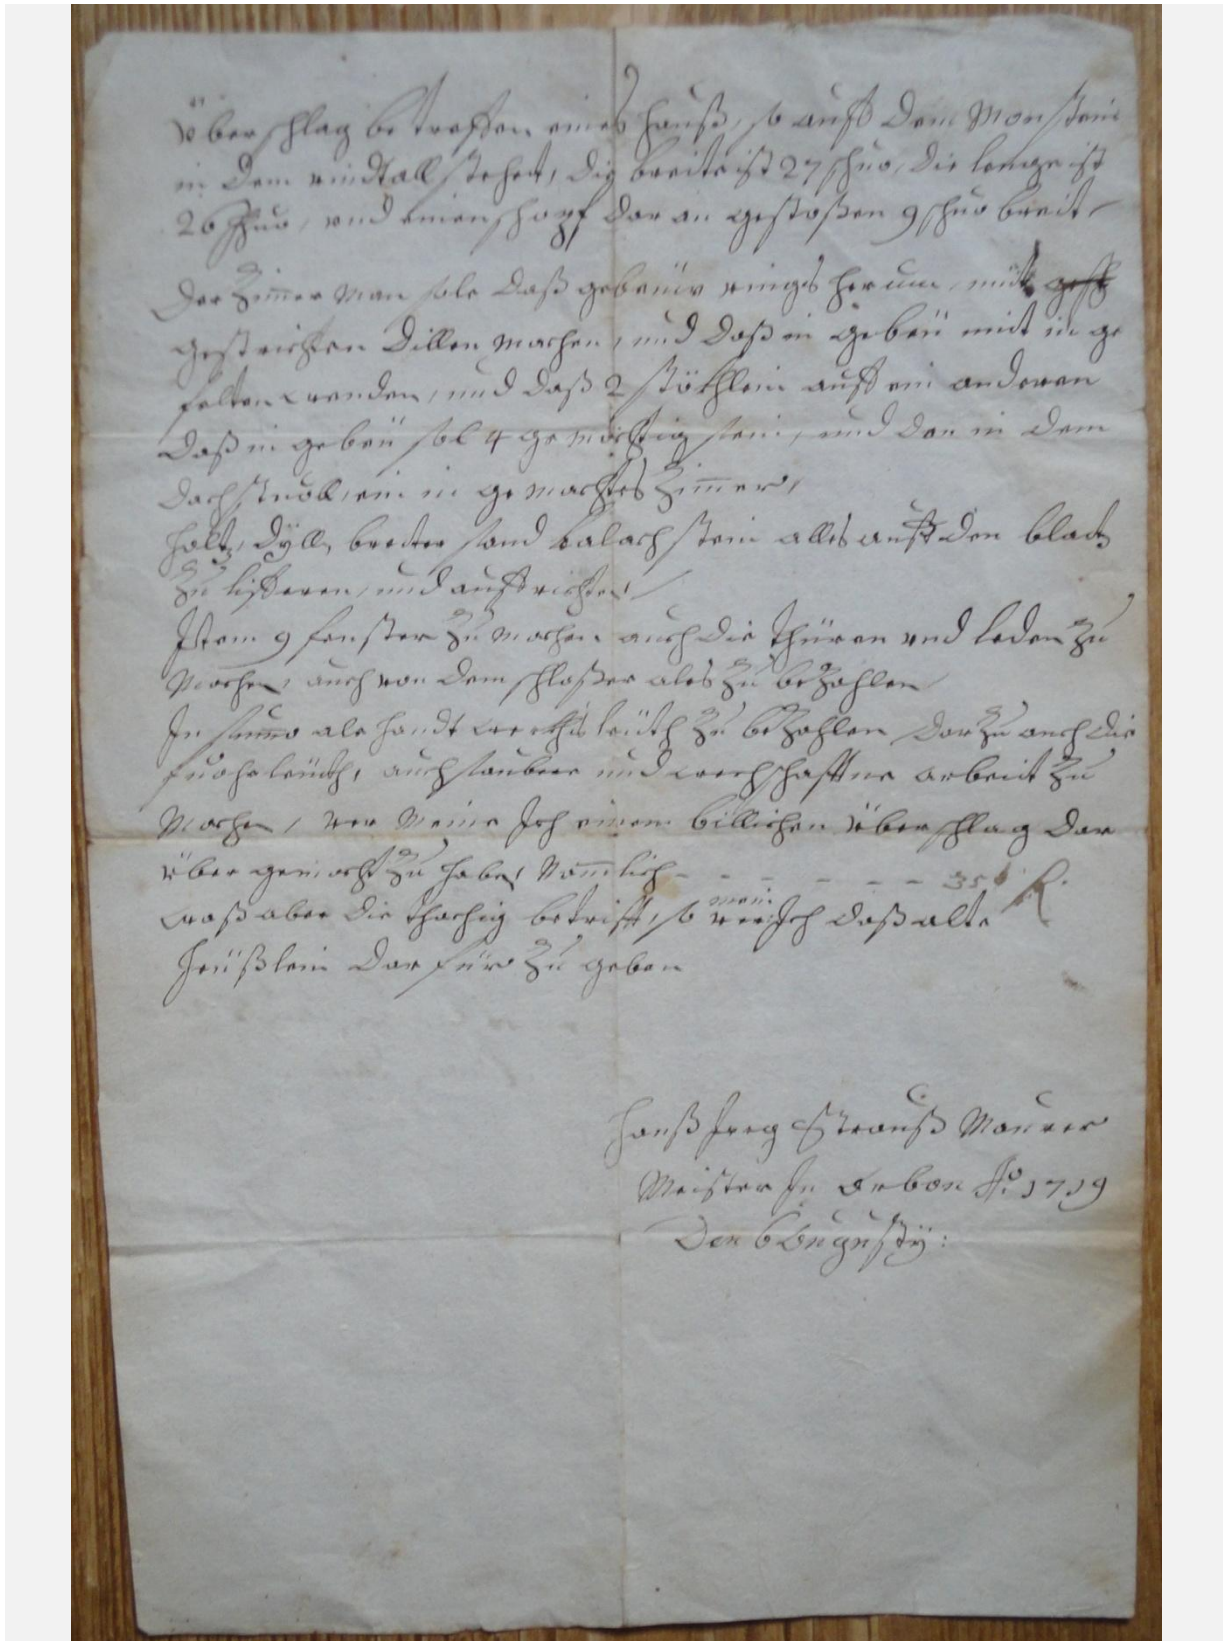 Überschlag betreffen eines hauß, so auff dem Monstein
in dem rindtall stehet, die breite ist 27 schuo, die lenge ist
26 schuo, und einen schopf dar an gestoßen 9 schuo breit
Der Zimer Man sole daß gebeüw rings herum, mit
gestrichten dillen machen, und daß in gebeü mit in ge
felten wenden, und daß 2 stöklein auff ein anderen
daß in gebeü sol 4 ge mächtig sein, und dan in dem
dach stuoll, ein in gemachtes Zimmer,
holtz, dÿll, breter sand kalach stein alles auff den blatz
zu lifferen, und auff richten
Item 9 fenster zu machen auch die thüren und leden zu
machen, auch von dem schloßer ales zu bezahlen
In suma ale handt werkhs leüth zu bezahlen dar zu auch die
fuohr leüth, auch saubere und werchschaffte arbeit zu
machen, ver meine Ich einem billichen überschlag dar
über gemacht zu haben, Namlich - - - - - - 350 fl.
waß aber die thachig betrifft, so ver mein Ich daß alte
heüßlein dar für zu geben
Hanß Jreg Strauß Maurer
Meister In Arbon Ao. 1719
Den 6 Augusty: